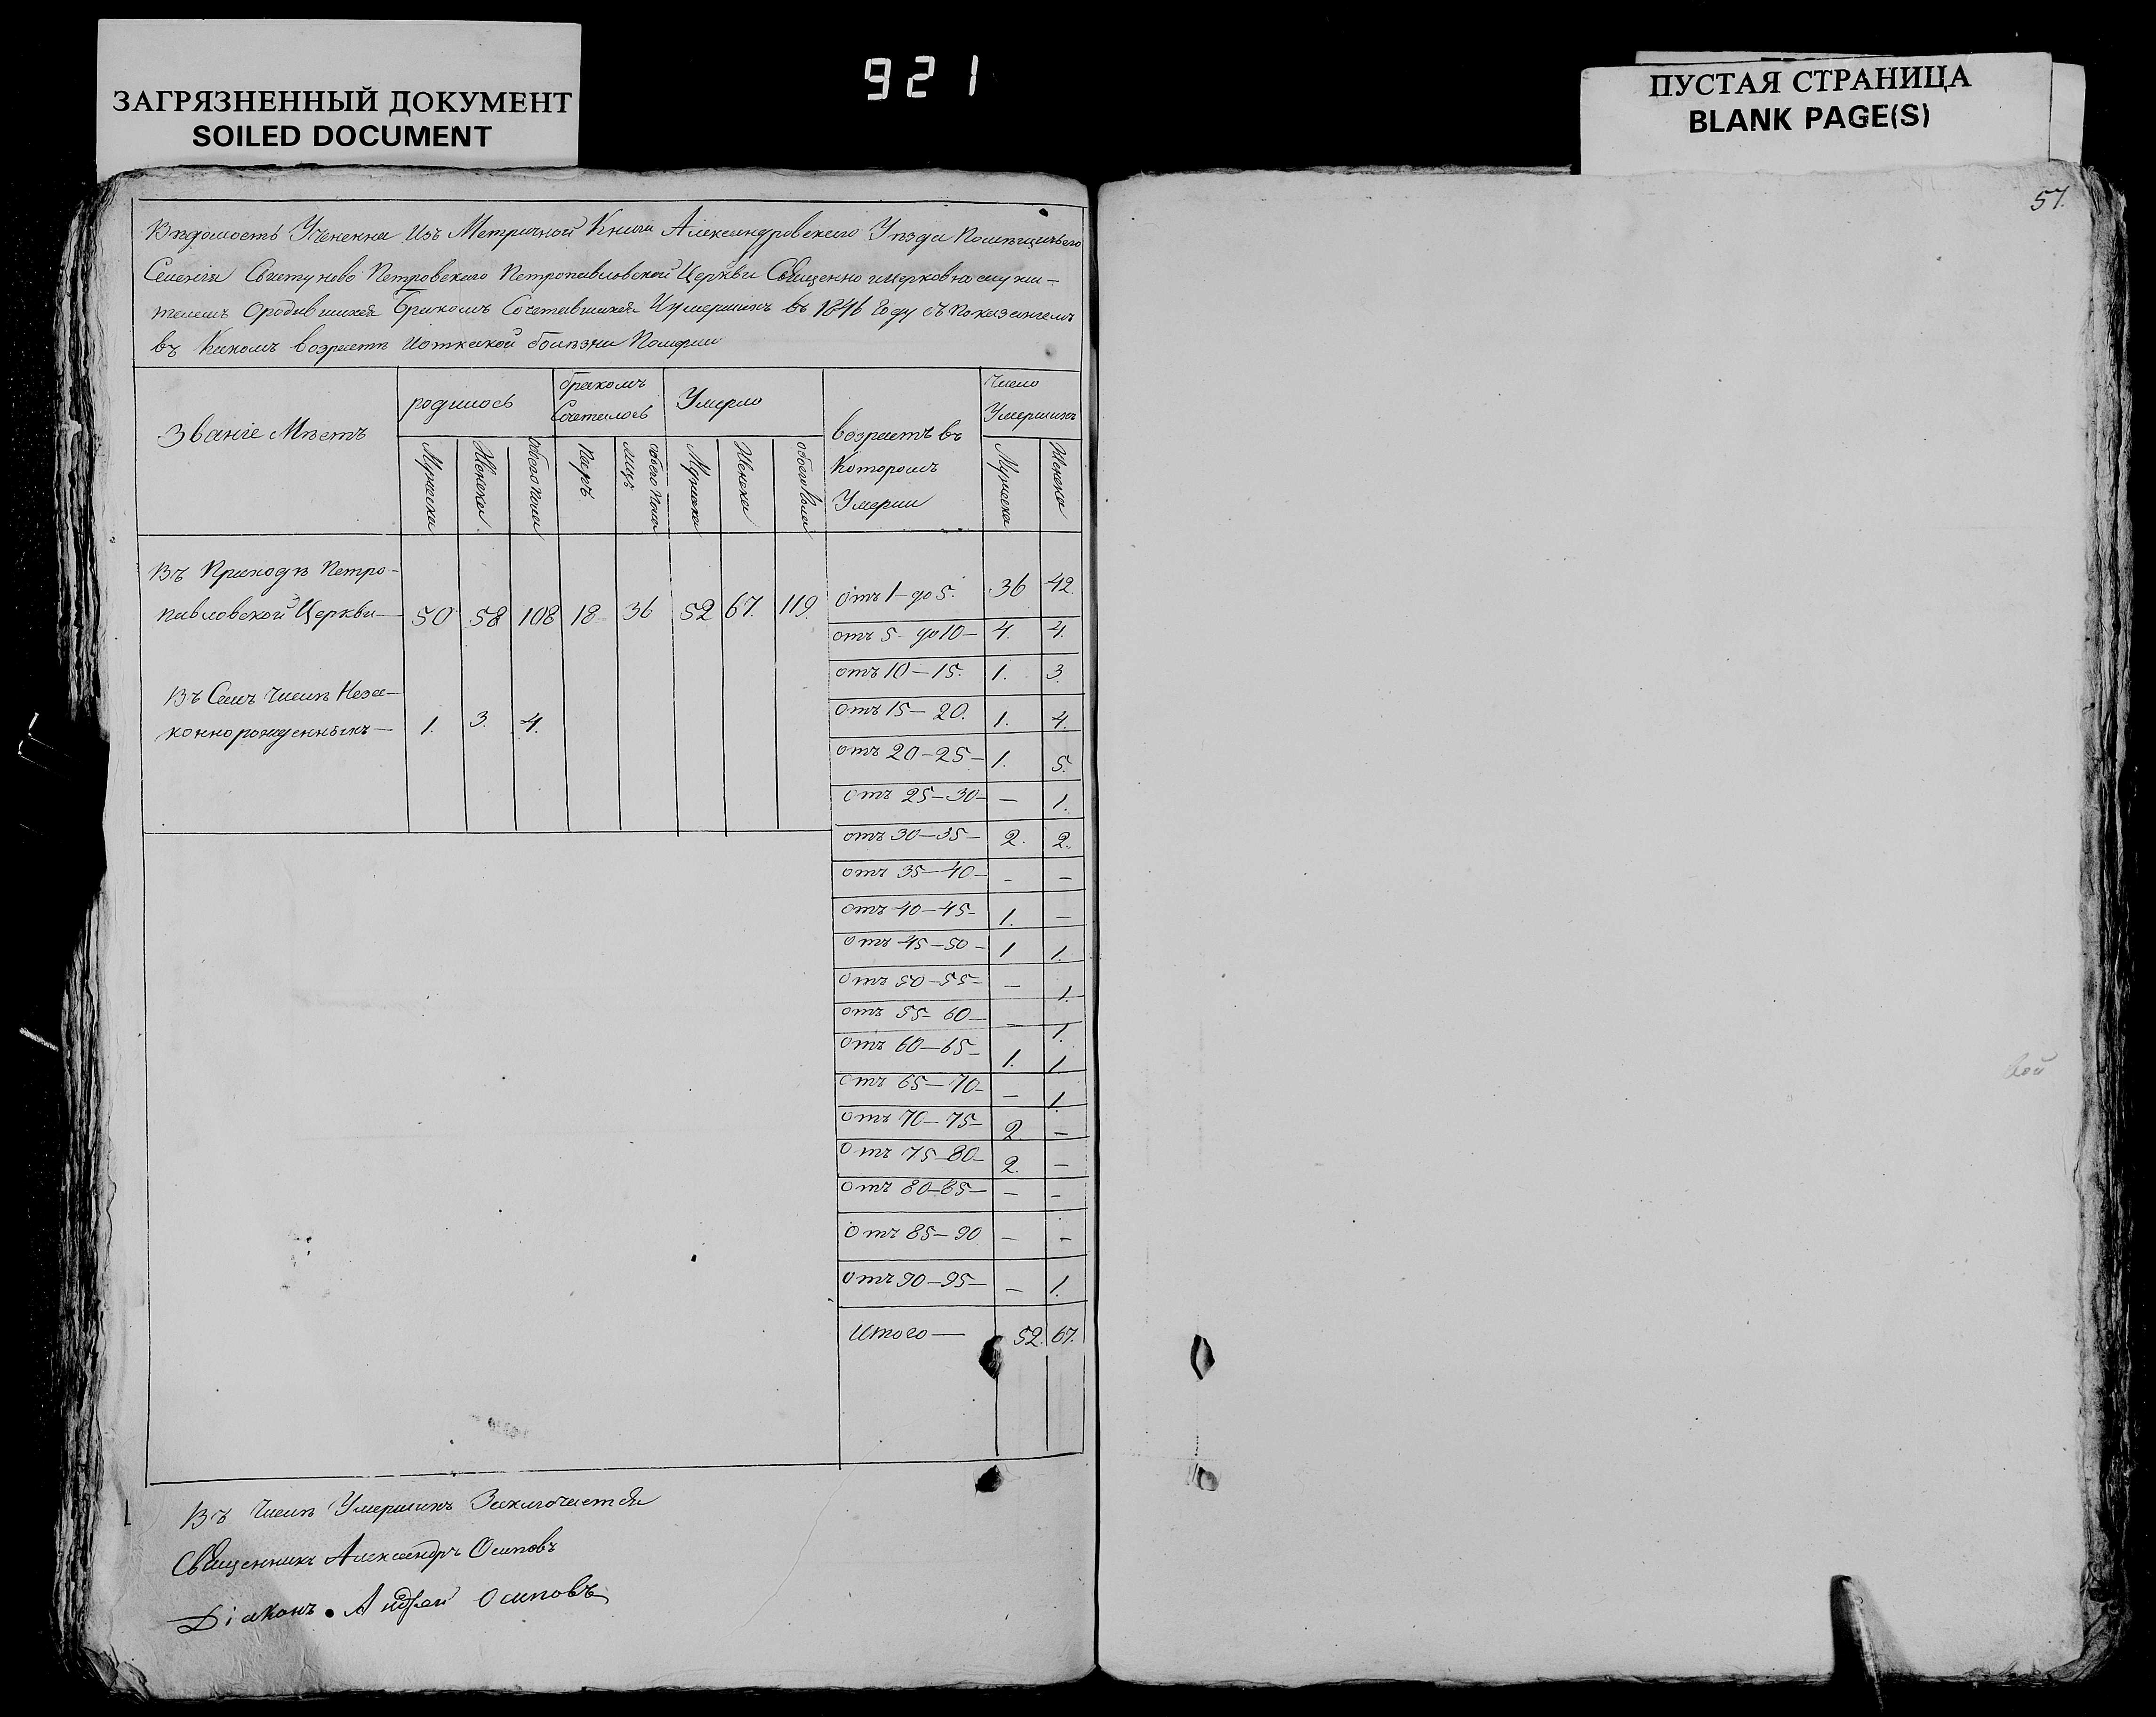 ЗАГРЯЗНЕННЫЙ ДОКУМЕНТ
SOILED DOCUMENT
921
ПУСТАЯ СТРАНИЦА
BLANK PAGE(S)
57.
Вѣдомость Учененна Изъ Метричной Книги Александровскаго Уѣзда Помѣщичьяго
Селенія Петровскаго Петропавловской Церкви Священно ицерковно служи-
телемъ Ородившихся бракомъ Сочетавшихся Иумершихъ въ 1846 Году съ показаніемъ
въ Какомъ возрастѣ Иоткакой болѣзни Померли
Званіе Мѣстъ
родилось
бракомъ Сочеталось
Умерло
возрастъ въ Которомъ Умерли
Число Умершихъ
Мужеска Женска обоего пола Паръ обоего пола лицъ Мужска Женска обоего пола Мужеска Женска
Въ Приходѣ Петро-
павловской Церкви— 50 58 108 18 36 52 67. 119.
Въ Семъ Числѣ Неза-
коннорожденныхъ— 1. 3. 4.
Отъ 1 до 5. 36 42.
отъ 5 до 10— 4. 4.
отъ 10—15. 1. 3.
отъ 15—20. 1. 4.
отъ 20—25— 1. 5.
отъ 25—30— — 1.
отъ 30—35— 2. 2.
отъ 35—40— — —
отъ 40—45— 1. —
отъ 45—50— 1 1.
отъ 50—55— — 1.
отъ 55—60— — 1.
отъ 60—65— 1. 1.
отъ 65—70— — 1.
отъ 70—75— 2. —
отъ 75—80— 2. —
отъ 80—85— — —
отъ 85—90 — —
отъ 90—95— — 1.
Итого— 52. 67.
Въ Числѣ Умершихъ Заключается
Священникъ Александръ Осиповъ
Діаконъ. Андрей Осиповъ